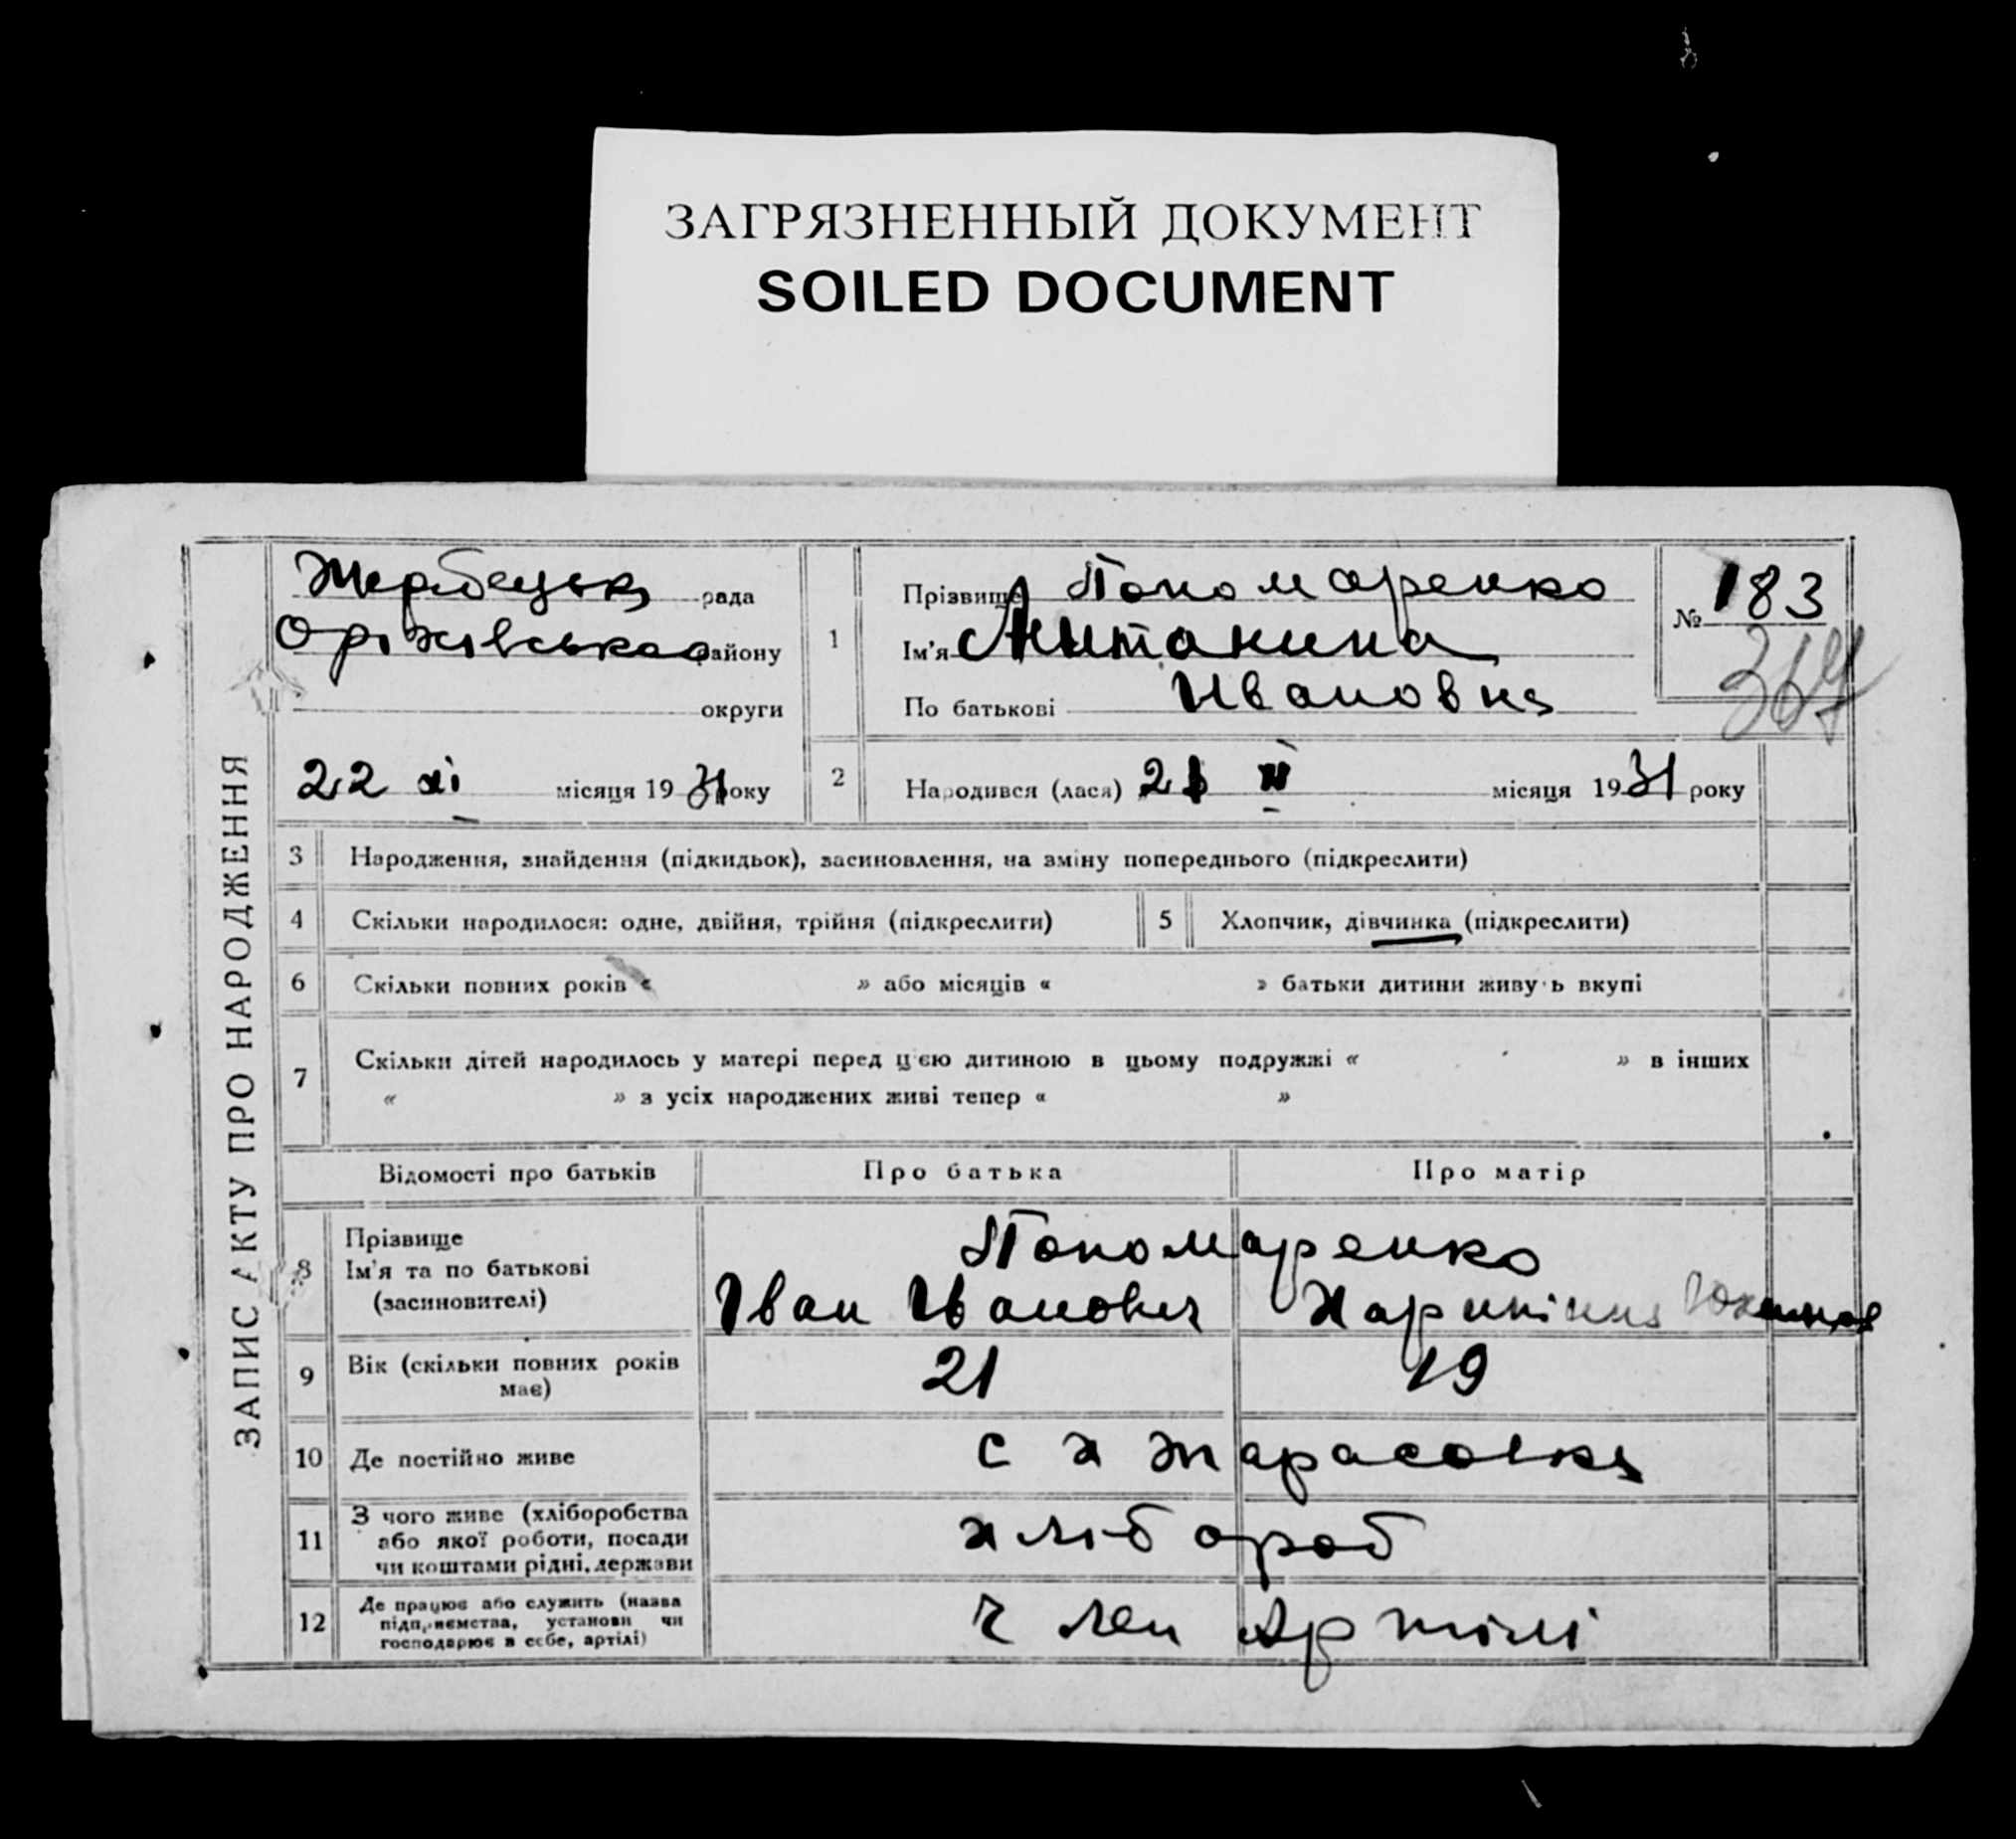 ЗАГРЯЗНЕННЫЙ ДОКУМЕНТ
SOILED DOCUMENT
ЗАПИС АКТУ ПРО НАРОДЖЕННЯ
рада
району
округи
22 XI місяця 1931 року
1
Прізвище Пономаренко
Ім'я Антонина
По батькові Ивановна
№ 183
2 Народився (лася) місяця 1931 року
3 Народження, знайдення (підкидьок), засиновлення, на зміну попереднього (підкреслити)
4 Скільки народилося: одне, двійня, трійня (підкреслити)
5 Хлопчик, дівчинка (підкреслити)
6 Скільки повних років « » або місяців « » батьки дитини живу ь вкупі
7 Скільки дітей народилось у матері перед цією дитиною в цьому подружжі « » в інших
« » з усіх народжених живі тепер « »
Відомості про батьків Про батька Про матір
8 Прізвище
Ім'я та по батькові
(засиновителі)
Пономаренко
Іван Иванович
9 Вік (скільки повних років
має)
21 19
10 Де постійно живе
с х Тарасовка
11 З чого живе (хліборобства
або якої роботи, посади
чи коштами рідні, держави
хлібороб
12 Де працює або служить (назва
підприємства, установи чи
господарює в себе, артілі)
член Артілі